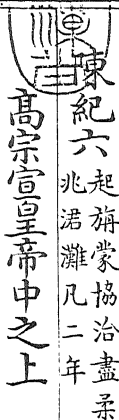 陳紀六
起旃蒙協洽盡柔
兆涒灘凡二年
髙宗宣皇帝中之上